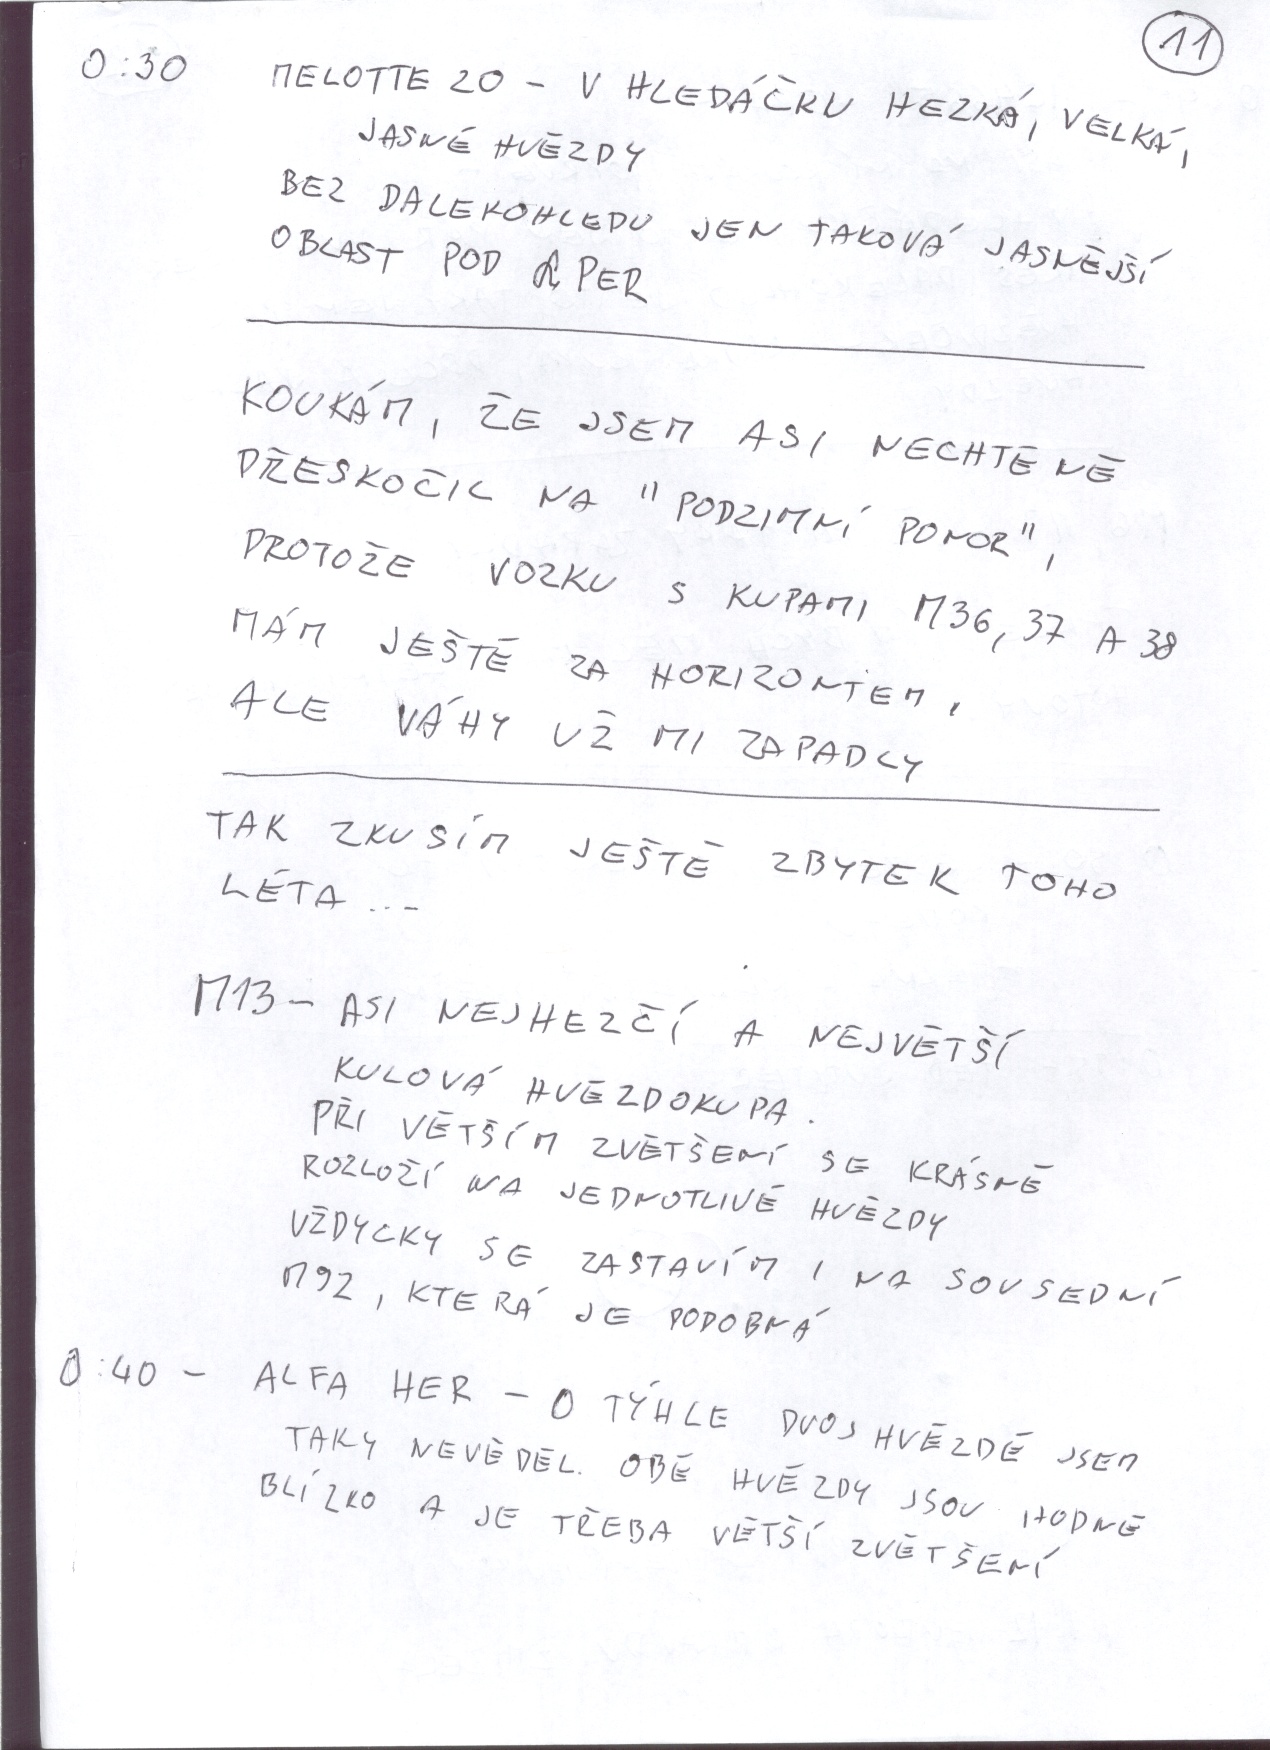 11
0:30 MELOTTE 20 - V HLEDÁČKU HEZKÁ, VELKÁ,
JASNÉ HVĚZDY
BEZ DALEKOHLEDU JEN TAKOVÁ JASNĚJŠÍ
OBLAST POD PER
KOUKÁM, ŽE JSEM ASI NECHTĚNĚ
PŘESKOČIL NA "PODZIMNÍ PONOR",
PROTOŽE VOZKU S KUPAMI M36, 37 A 38
MÁM JEŠTĚ ZA HORIZONTEM,
ALE VÁHY UŽ MI ZAPADLY
TAK ZKUSÍM JEŠTĚ ZBYTEK TOHO
LÉTA ...
M13 - ASI NEJHEZČÍ A NEJVĚTŠÍ
KULOVÁ HVĚZDOKUPA.
PŘI VĚTŠÍM ZVĚTŠENÍ SE KRÁSNĚ
ROZLOŽÍ NA JEDNOTLIVÉ HVĚZDY
VŽDYCKY SE ZASTAVÍM I NA SOUSEDNÍ
M92, KTERÁ JE PODOBNÁ
0:40 - ALFA HER - O TÝHLE DVOJHVĚZDĚ JSEM
TAKY NEVĚDĚL. OBĚ HVĚZDY JSOU HODNĚ
BLÍZKO A JE TŘEBA VĚTŠÍ ZVĚTŠENÍ